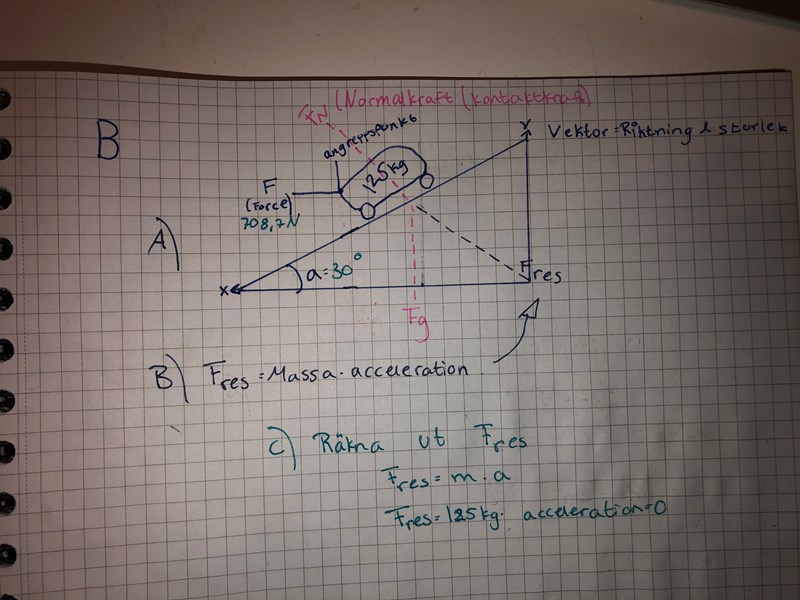 FN (Normalkraft (kontaktkraft)
B
angreppspunkt
Y Vektor = Riktning & storlek
125kg
F
(Force)
708,7N
A)
a=30°
X
Fres
Fg
B) Fres = Massa · acceleration
C) Räkna ut Fres
Fres = m · a
Fres = 125kg · acceleration=0